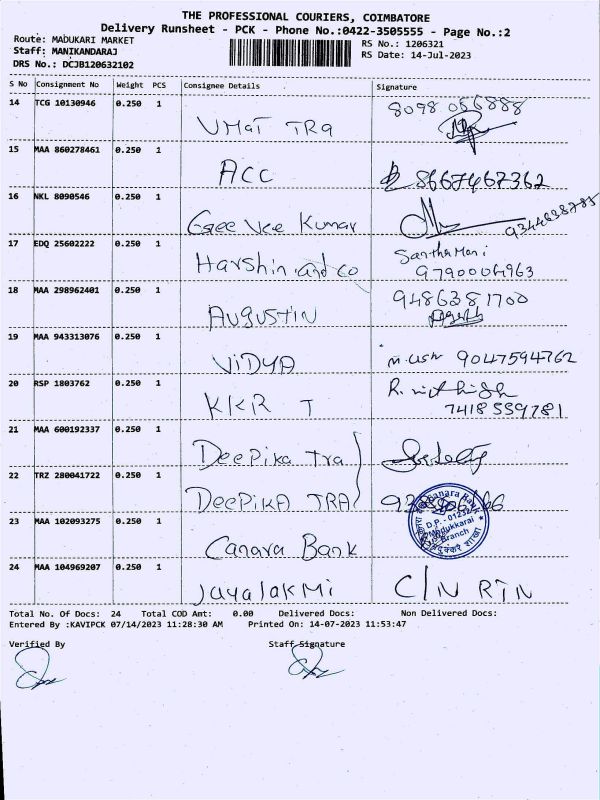 THE PROFESSIONAL COURIERS, COIMBATORE
Delivery Runsheet - PCK - Phone No.:0422-3505555 - Page No.:2
Route: MADUKARI MARKET
RS No.: 1206321
Staff: MANIKANDARAJ
RS Date: 14-Jul-2023
DRS No.: DCJB120632102
S No Consignment No Weight PCS Consignee Details Signature
14 TCG 10130946 0.250 1 UMAT TRA 8098 056888
15 MAA 860278461 0.250 1 ACC 8667467362
16 NKL 8090546 0.250 1 Gsee Vee Kumar 9344638785
17 EDQ 25602222 0.250 1 Harshin and co Santha Mani
9790004963
18 MAA 298962401 0.250 1 AUGUSTIN 9486381700
19 MAA 943313076 0.250 1 VIDYA 9047594762
20 RSP 1803762 0.250 1 KKR T
7418559781
21 MAA 600192337 0.250 1 DeePika Tra
22 TRZ 280041722 0.250 1 DEEPIKA TRA
23 MAA 102093275 0.250 1 Canara Bank
Canara Bank
D.P. - 01232
Madukkarai
Branch
शाखा
24 MAA 104969207 0.250 1 Jayalakmi C/N RTN
Total No. Of Docs: 24 Total COD Amt: 0.00 Delivered Docs: Non Delivered Docs:
Entered By :KAVIPCK 07/14/2023 11:28:30 AM Printed On: 14-07-2023 11:53:47
Verified By Staff Signature